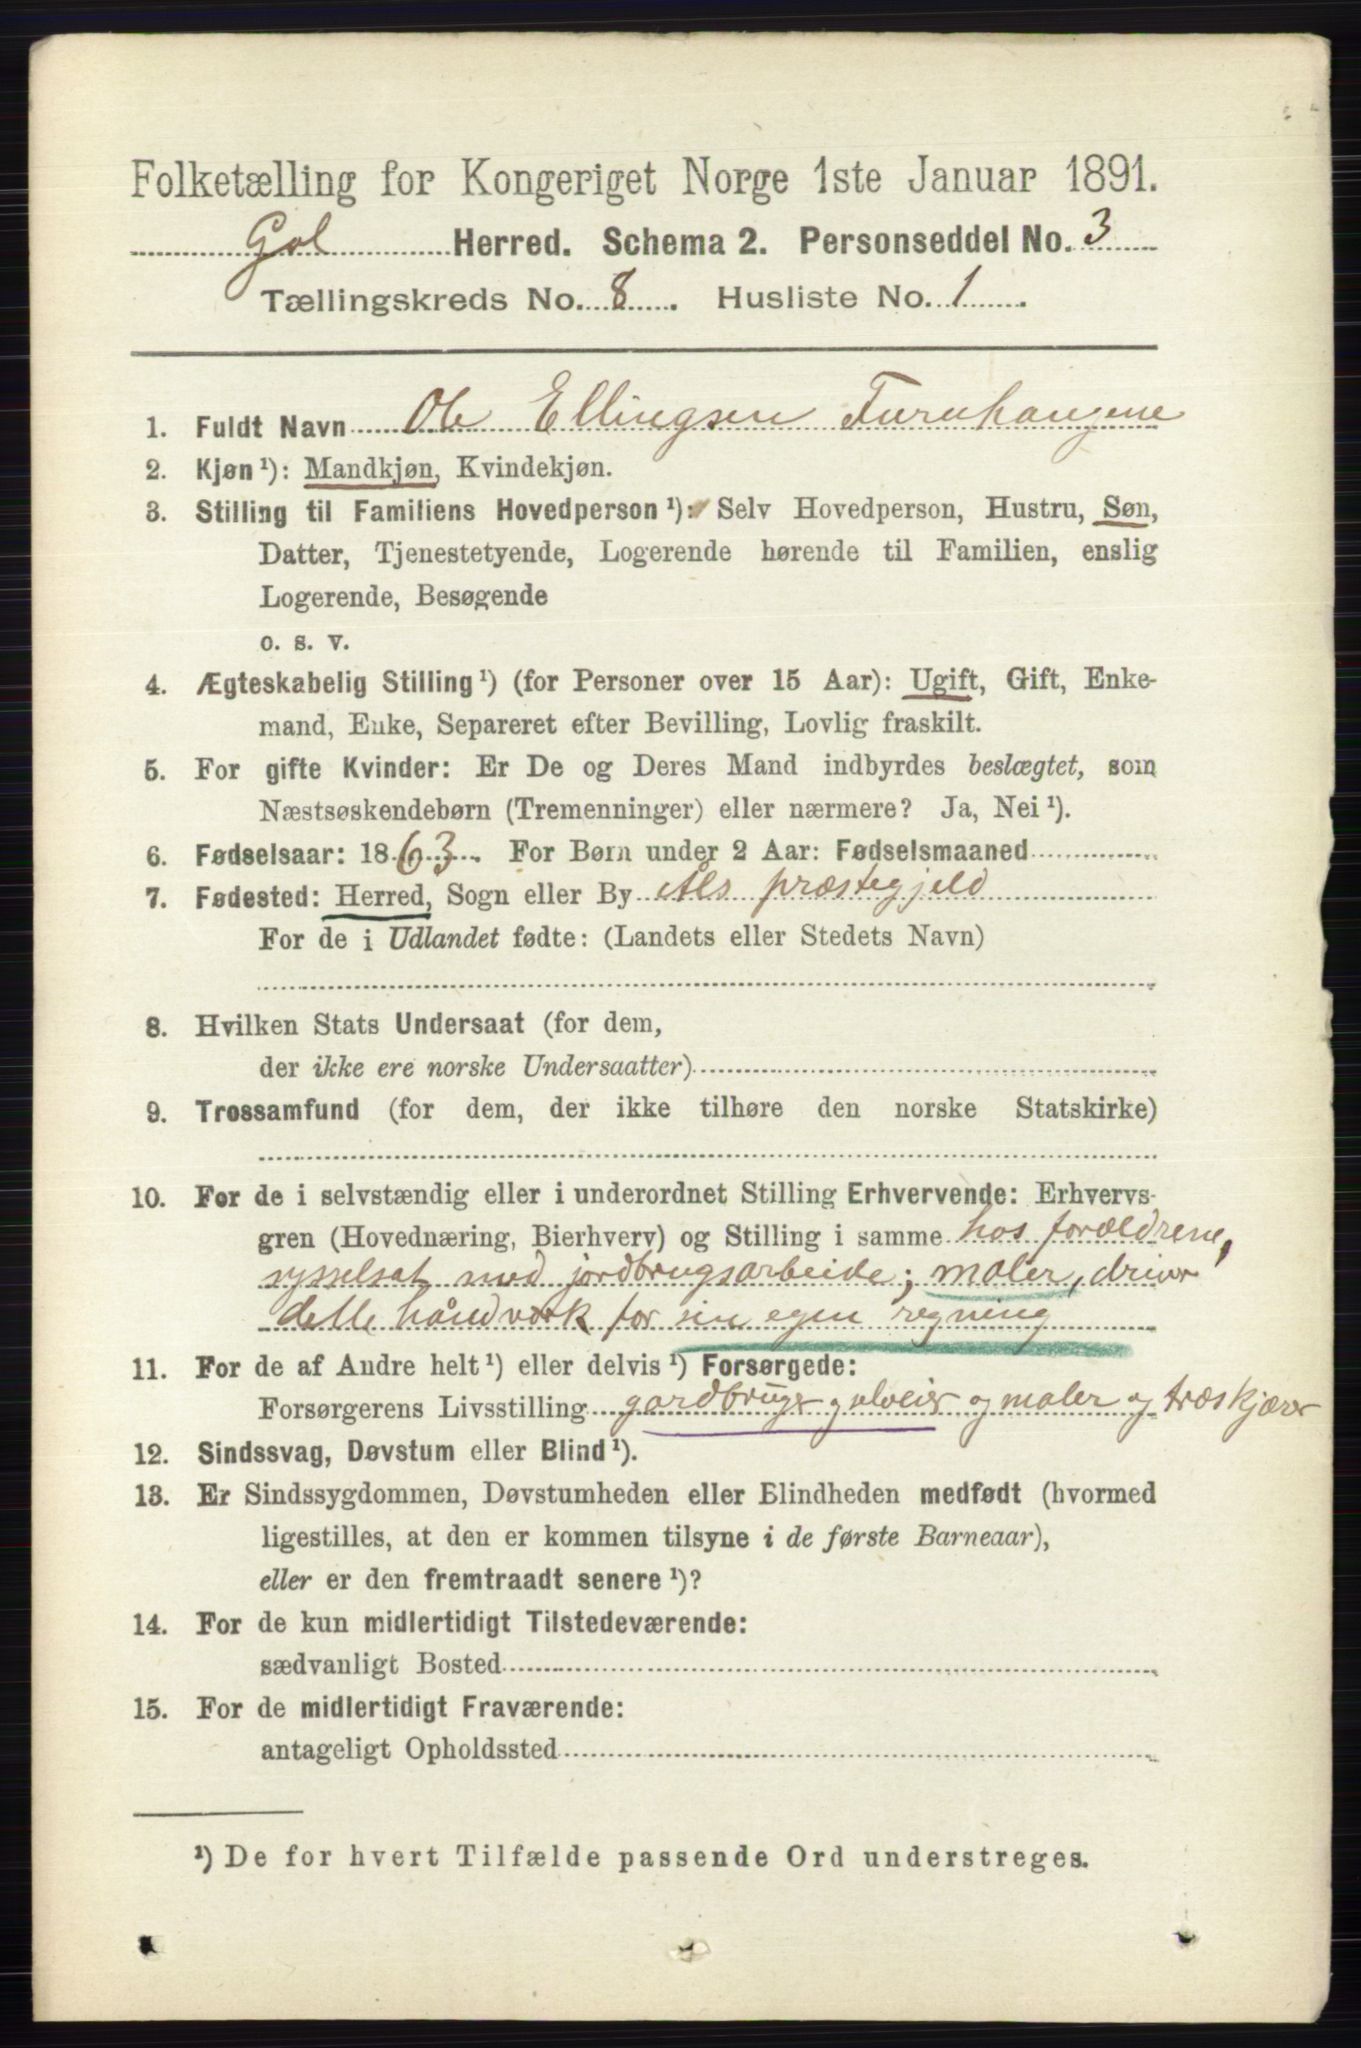 Folketælling for Kongeriget Norge 1ste Januar 1891.
Gol Herred. Schema 2. Personseddel No. 3
Tællingskreds No. 8. Husliste No. 1.
1. Fuldt Navn Ole Ellingsen Furuhaugene
2. Kjøn ¹): Mandkjøn, Kvindekjøn.
3. Stilling til Familiens Hovedperson ¹): Selv Hovedperson, Hustru, Søn,
Datter, Tjenestetyende, Logerende hørende til Familien, enslig
Logerende, Besøgende
o. s. v.
4. Ægteskabelig Stilling ¹) (for Personer over 15 Aar): Ugift, Gift, Enke-
mand, Enke, Separeret efter Bevilling, Lovlig fraskilt.
5. For gifte Kvinder: Er De og Deres Mand indbyrdes beslægtet, som
Næstsøskendebørn (Tremenninger) eller nærmere? Ja, Nei ¹).
6. Fødselsaar: 1863. For Børn under 2 Aar: Fødselsmaaned
7. Fødested: Herred, Sogn eller By Als præstegjeld
For de i Udlandet fødte: (Landets eller Stedets Navn)
8. Hvilken Stats Undersaat (for dem,
der ikke ere norske Undersaatter)
9. Trossamfund (for dem, der ikke tilhøre den norske Statskirke)
10. For de i selvstændig eller i underordnet Stilling Erhvervende: Erhvervs-
gren (Hovednæring, Bierhverv) og Stilling i samme hos forældrene,
sysselsat med jordbrugsarbeide; maler, driver
dette håndverk for sin egen regning
11. For de af Andre helt ¹) eller delvis ¹) Forsørgede:
Forsørgerens Livsstilling gardbruger og selveier og maler og træskjærer
12. Sindssvag, Døvstum eller Blind ¹).
13. Er Sindssygdommen, Døvstumheden eller Blindheden medfødt (hvormed
ligestilles, at den er kommen tilsyne i de første Barneaar),
eller er den fremtraadt senere ¹)?
14. For de kun midlertidigt Tilstedeværende:
sædvanligt Bosted
15. For de midlertidigt Fraværende:
antageligt Opholdssted
¹) De for hvert Tilfælde passende Ord understreges.